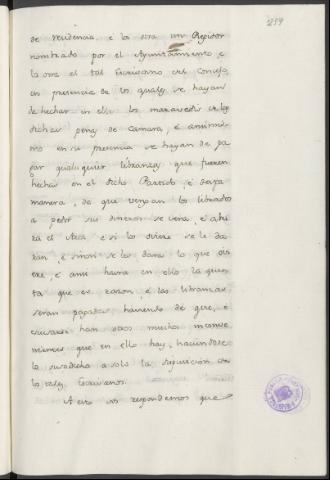 259
de residencia, e la otra un Regidor
nombrado por el Ayuntamiento, e
la otra el tal Escrivano del Concejo,
en presencia de los quales se hayan
de hechar en ello los maravedis de las
dichas penas de camara, e assimis-
mo en su presencia se hayan de pa
gar qualesquier libranzas que fueren
hechas en el dicho Partido, e desta
manera, de que vengan los librados
a pedir sus dineros se vera, e abri
rá el Arca e si los oviere se les da
ran, e sinon se les dara lo que ovi
ere, e assi havra en ello la quen
ta que es razon, e las libranzas
seran pagadas haviendo de que, e
escusarse han otros muchos inconve
nientes que en ello hay, haciendose
lo susodicho a solo la disposicion de
los tales Escrivanos.
A esto vos respondemos que